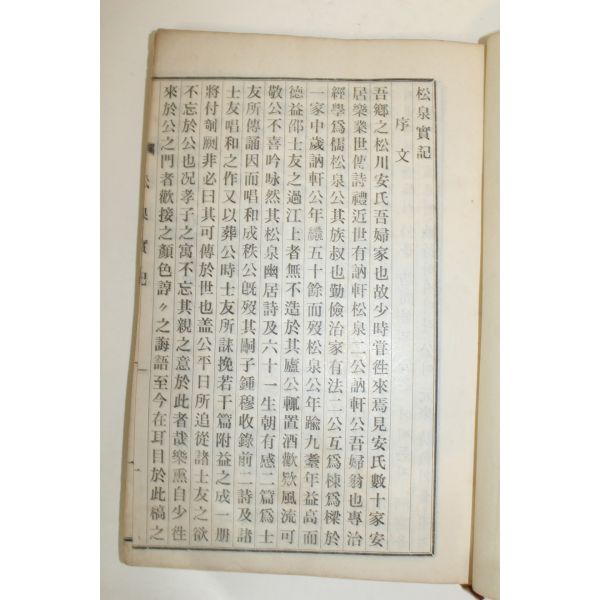 松泉實記
序文
吾鄉之松川安氏吾婦家也故少時嘗徃來焉見安氏數十家安
居樂業世傳詩禮近世有訥軒松泉二公訥軒公吾婦翁也專治
經學爲儒松泉公其族叔也勤儉治家有法二公互爲棟爲樑於
一家中歲訥軒公年纔五十餘而歿松泉公年踰九耋年益高而
德益邵士友之過江上者無不造於其廬公輒置酒歡欵風流可
敬公不喜吟咏然其松泉幽居詩及六十一生朝有感二篇爲士
友所傳誦因而唱和成秩公旣歿其嗣子鍾穆收錄前二詩及諸
士友唱和之作又以葬公時士友所誄挽若干篇附益之成一册
將付剞劂非必曰其可傳於世也盖公平日所追從諸士友之欲
不忘於公也况孝子之寓不忘其親之意於此者哉樂熏自少徃
來於公之門者歡接之顏色諄〃之誨語至今在耳目於此稿之
松泉實記